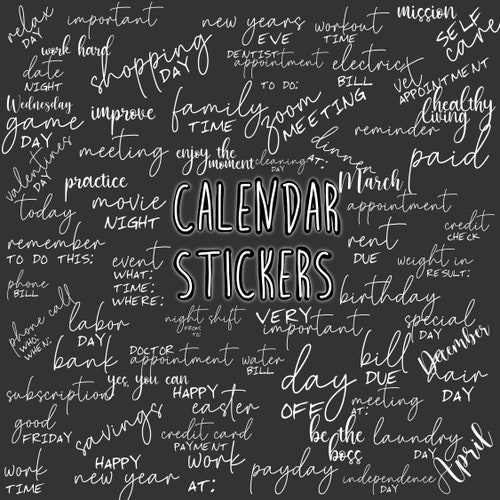 relax
DAY
important
new years
EVE
workout
TIME
mission
SELF
care
work hard
date
NIGHT
shopping
DAY
DENTIST
appointment
electrics
BILL
vet
APPOINTMENT
TO DO:
Wednesday
game
DAY
improve
family
TIME
zoom
MEETING
healthy
living
reminder
valentines
DAY
meeting
enjoy the
moment
cleaning
DAY
AT:
dinner
paid
practice
March
today
movie
NIGHT
CALENDAR
STICKERS
appointment
credit
CHECK
remember
TO DO THIS:
event
WHAT:
TIME:
WHERE:
rent
DUE
weight in
RESULT:
phone
BILL
birthday
phone call
WHO:
WHEN:
labor
DAY
night shift
FROM
TO:
VERY
important
special
DAY
bank
DOCTOR
appointment
water
BILL
bill
DUE
December
hair
DAY
subscription
yes, you can
HAPPY
easter
day
OFF
meeting
AT:
good
FRIDAY
savings
credit card
PAYMENT
be the
boss
laundry
DAY
April
work
TIME
HAPPY
new year
work
AT:
payday
independence
DAY